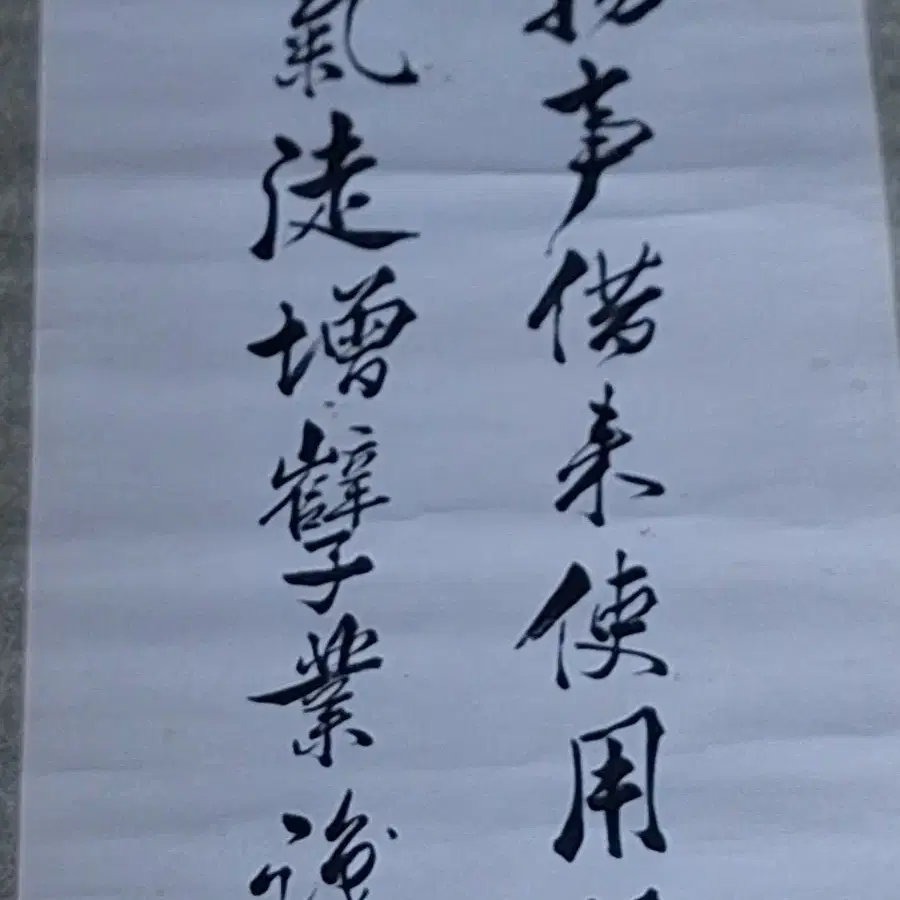 事借来使用
氣徒增孽業